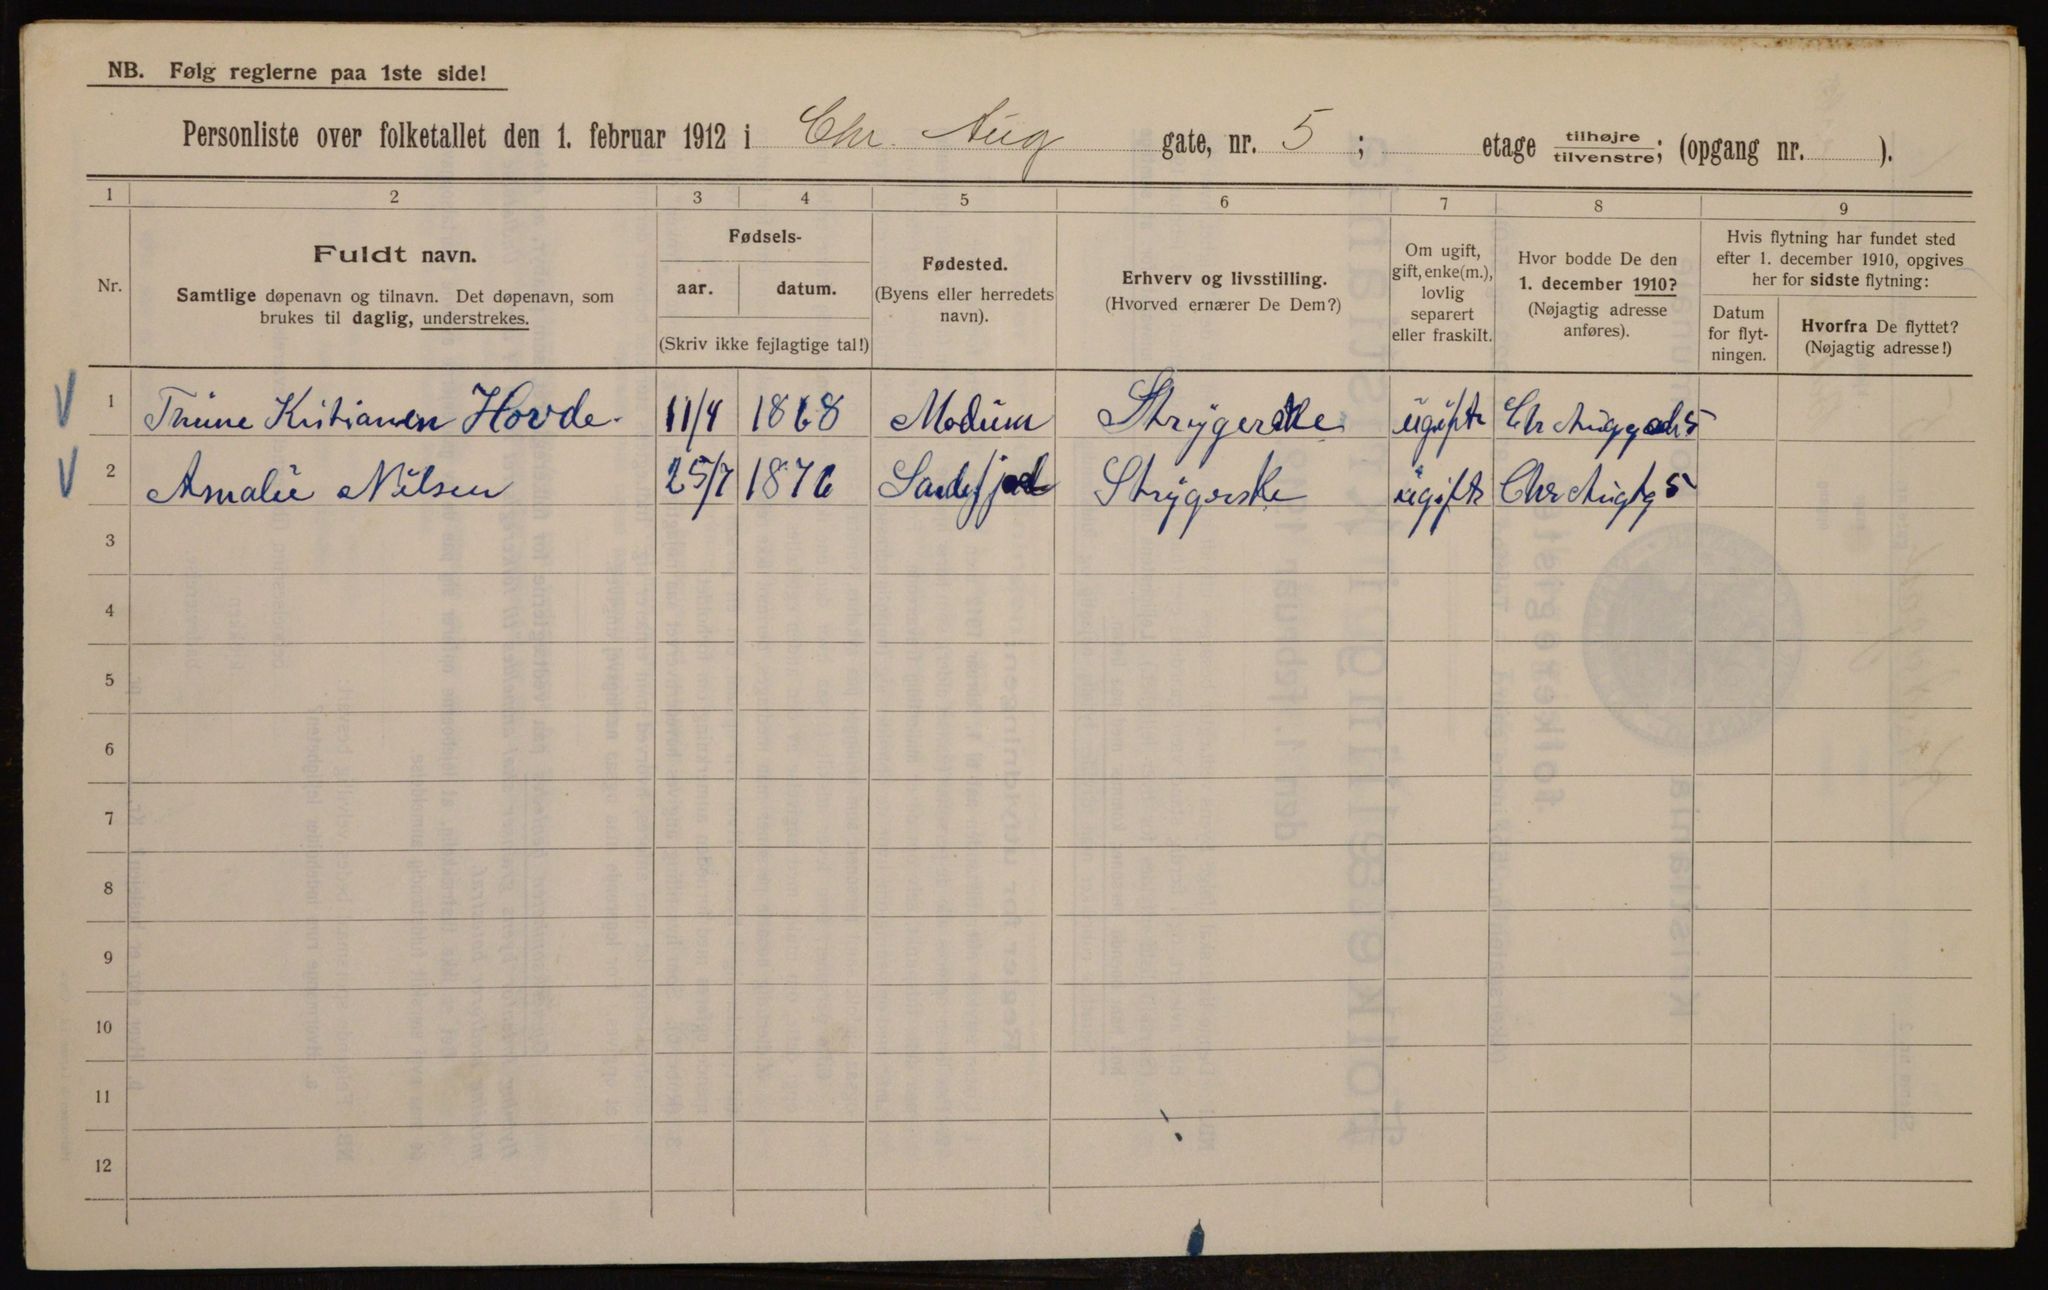 NB. Følg reglerne paa 1ste side!
Personliste over folketallet den 1. februar 1912 i Chr. Aug gate, nr. 5 ; etage tilhøjre/tilvenstre; (opgang nr. ).
1 2 3 4 5 6 7 8 9
Nr.
Fuldt navn.
Samtlige døpenavn og tilnavn. Det døpenavn, som
brukes til daglig, understrekes.
Fødsels-
aar. datum.
(Skriv ikke fejlagtige tal!)
Fødested.
(Byens eller herredets
navn).
Erhverv og livsstilling.
(Hvorved ernærer De Dem?)
Om ugift,
gift, enke(m.),
lovlig
separert
eller fraskilt.
Hvor bodde De den
1. december 1910?
(Nøjagtig adresse
anføres).
Hvis flytning har fundet sted
efter 1. december 1910, opgives
her for sidste flytning:
Datum
for flyt-
ningen.
Hvorfra De flyttet?
(Nøjagtig adresse!)
V 1 Hovde 11/4 1868 Modum Strygerske ugift Chr 5
V 2 Amalie Nilsen 25/7 1876 Strygerske ugift Chr Augtg 5
3
4
5
6
7
8
9
10
11
12